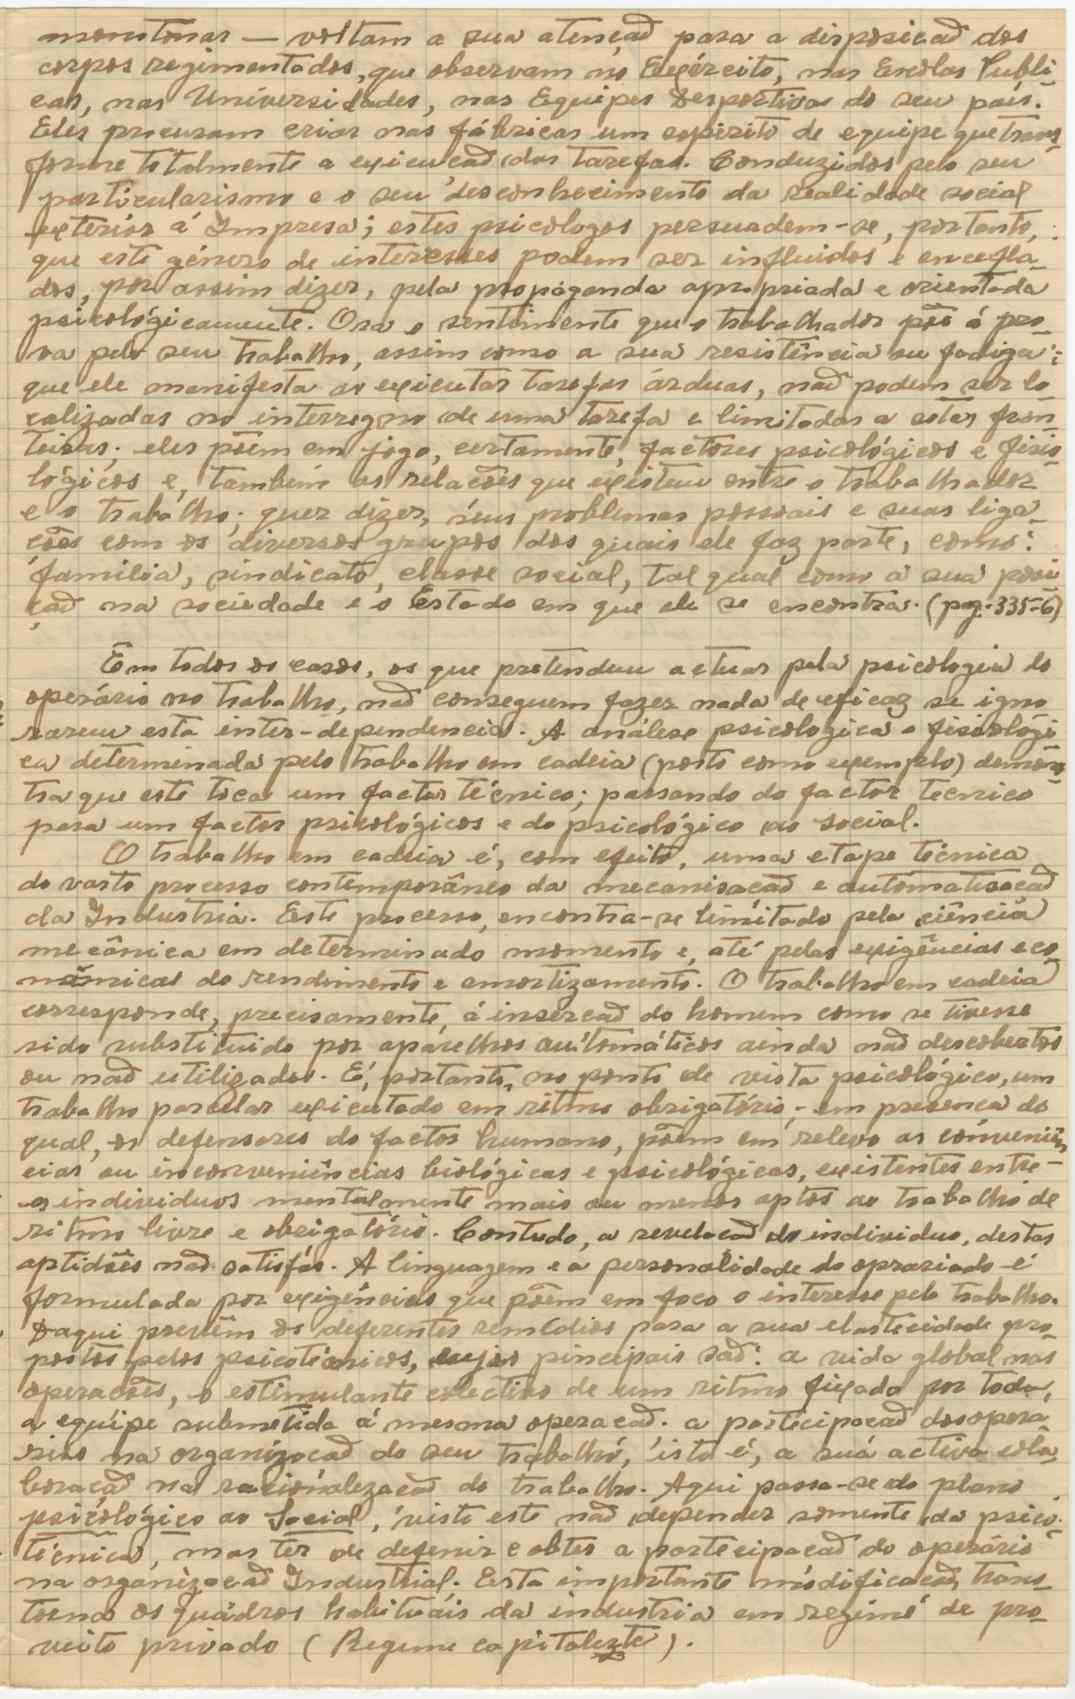 monótonas — voltam a sua atençaõ para a disposicaõ dos
corpos regimentados, que observam no Exército, nas Escolas Publi-
cas, nas Universidades, nas Equipes Desportivas do seu país.
Eles procuram criar nas fábricas um espirito de equipe que trans-
forme totalmente a execucaõ das tarefas. Conduzidos pelo seu
particularismo e o seu desconhecimento da realidade social
exterior á Impresa; estes psicologos persuadem-se, portanto,
que este género de interesses podem ser influidos e
dos, por assim dizer, pela propaganda apropriada e orientada
psicológicamente. Ora o sentimento que o trabalhador põe á pro-
va pelo seu trabalho, assim como a sua resistência ou fadiga
que ele manifesta ao executar tarefas árduas, naõ podem ser lo-
calizadas no interregno de uma tarefa e limitadas a estas fron-
teiras; eles põem em jogo, certamente, factores psicológicos e fisio-
lógicos e, também as relações que existem entre o trabalhador
e o trabalho; quer dizer, seus problemas pessoais e suas liga-
cões com os diversos grupos dos quais ele faz parte, como:
familia, sindicato, classe social, tal qual como a sua posi
çaõ na sociedade e o Estado em que ele se encontra. (pag. 335-6)
Em todos os casos, os que pretendem actuar pela psicologia do
operário no trabalho, naõ conseguem fazer nada de eficaz se igno
rarem esta inter-dependencia. A análese psicologica e fisiológi
ca determinada pelo trabalho em cadeia (posto como exemplo) demons-
tra que este toca um factor técnico; passando do factor tecnico
para um factor psicológicos e do psicológico ao social.
O trabalho em cadeia é, com efeito, uma etape técnica
do vasto processo contemporâneo da mecanisacaõ e automatisacaõ
da Industria. Este processo, encontra-se limitado pela ciência
mecânica em determinado momento e, até pelas exigências eco-
nómicas do rendimento e amortizamento. O trabalho em cadeia
corresponde, precisamente, á insercaõ do homem como se tivesse
sido substituido por aparelhos automáticos ainda naõ descobertos
ou naõ utilizados. É, portanto, no ponto de vista psicológico, um
trabalho parcelar executado em ritmo obrigatório, - em presenca do
qual, os defensores do factor humano, põem em relevo as conveniên
cias ou inconveniências biológicas e psicológicas, existentes entre -
os individuos mentalmente mais ou menos aptos ao trabalho de
ritmo livre e obrigatório. Contudo, a revelacaõ do individuo, destas
aptidões naõ satisfás. A linguagem e a personalidade do oprariado é
formulada por exigências que põem em foco o interesse pelo trabalho.
Daqui provêm os deferentes remédios para a sua elastecidade pro-
postos pelos psicotécnicos, cujos pincipais saõ: a vida global nas
operacões, o estimulante colectivo de um ritmo fixado por toda,
a equipe submetida á mesma operacaõ. a participacaõ dos opera-
rios na organizacaõ do seu trabalho, isto é, a sua activa cola
boracaõ na racionalezacaõ do trabalho. Aqui passa-se do plano
psicológico ao Social, visto este naõ depender somente da psico-
técnica, mas ter de defenir e obter a partecipacaõ do operário
na organizacaõ Industrial. Esta importante modificacaõ, trans-
torna os quadros habituais da industria em regime de pro-
veito privado (Regime capitalezte).